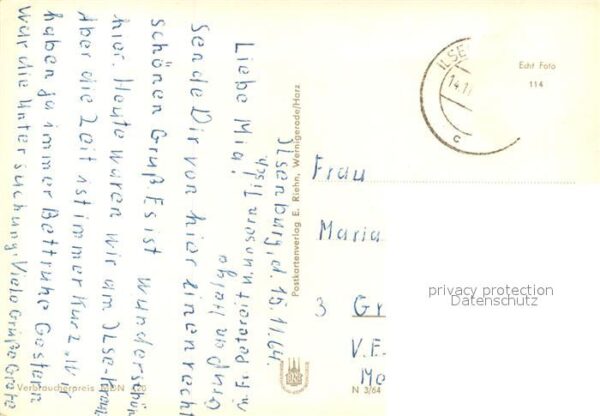 Ilsenburg, d. 15.11.64
Liebe Mia!
Sende Dir von hier einen recht
schönen Gruß. Es ist wunderschön
hier. Heute waren wir am Ilse-
Aber die Zeit ist immer kurz. Wir
haben ja immer Bettruhe Gestern
war die Untersuchung. Viele Grüße Grete
u. Fr. unseren Tisch
Postkartenverlag E. Riehn, Wernigerode/Harz
Verbraucherpreis MDN
N 3/64
ILSE
14.1
c
Echt Foto
114
Frau
Maria
3 Gr
V.E.
Ma
privacy protection
Datenschutz